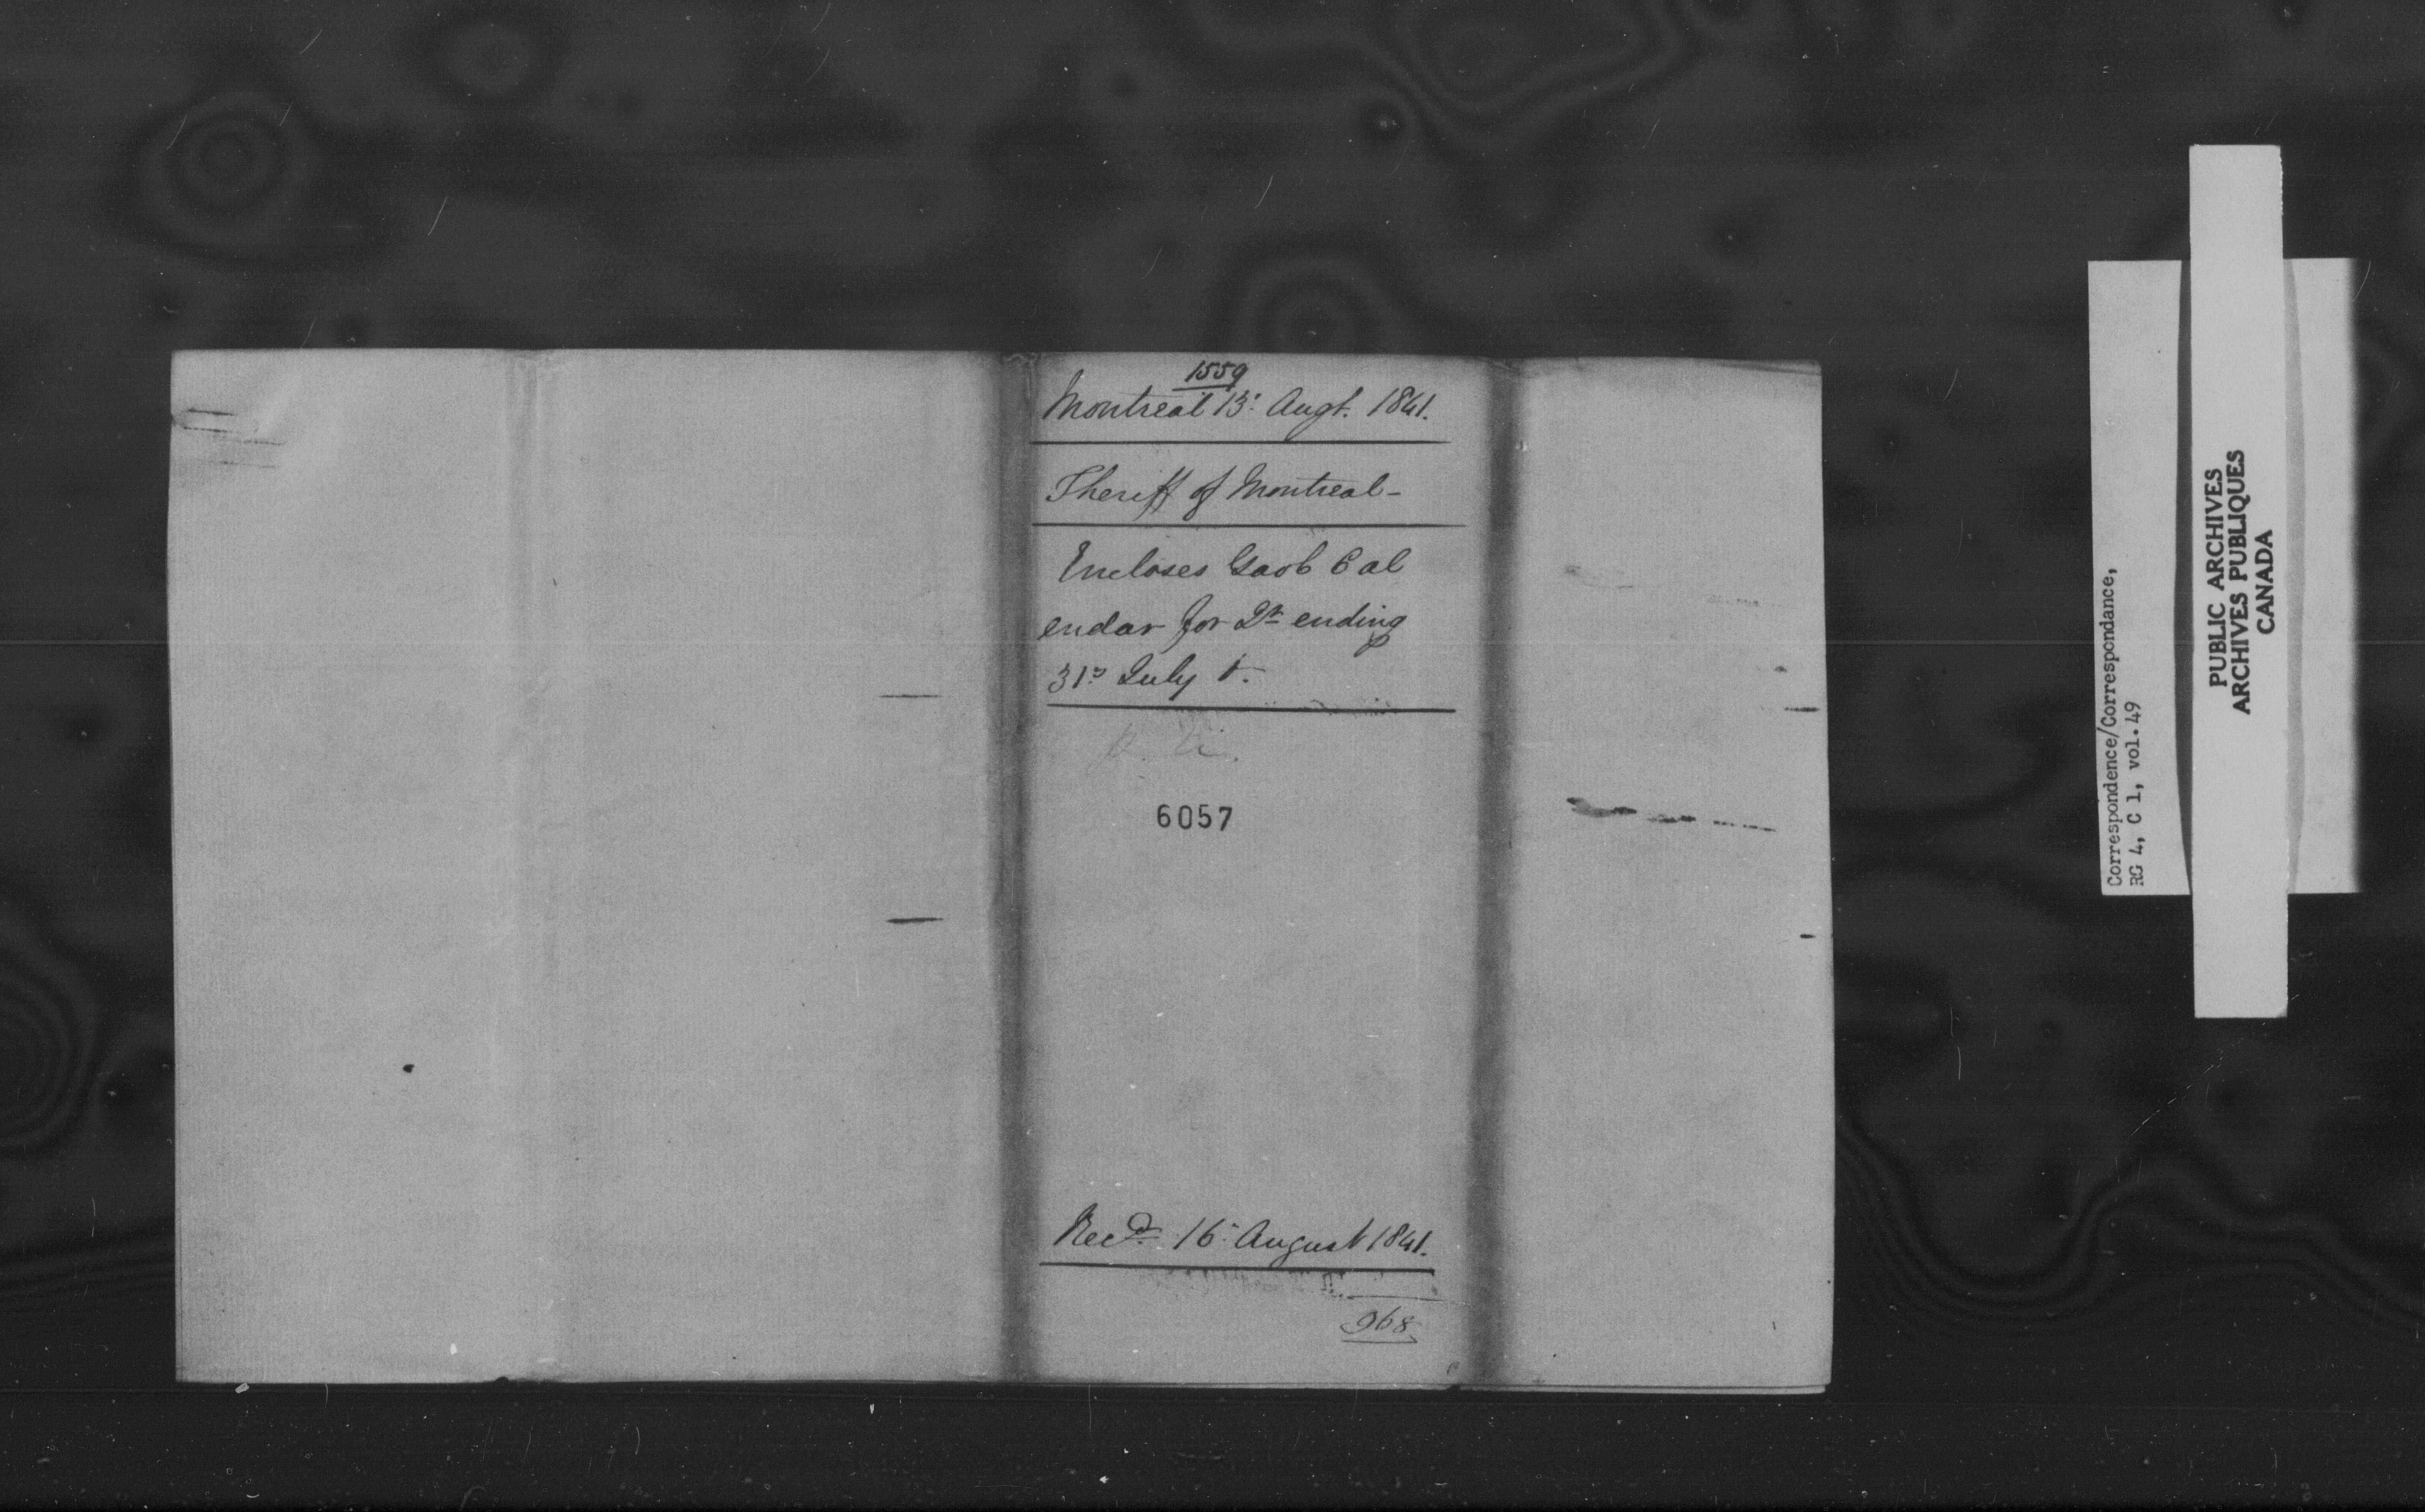 1559
Montreal 13: Augt. 1841.
Sheriff of Montreal-
Encloses Gaol Cal
endar for Qr ending
31st July
6057
Recd. 16: August 1841.
968
Correspondence/Correspondance,
RG 4, C 1, vol. 49
PUBLIC ARCHIVES
ARCHIVES PUBLIQUES
CANADA